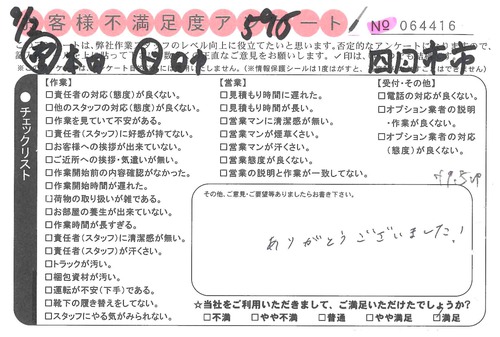 お客様不満足度アンケート
596
No 064416
このアンケートは、弊社作業スタッフのレベル向上に役立てたいと思います。否定的なアンケートではありますので、
四日市市
チェックリスト
【作業】
□責任者の対応(態度)が良くない。
□他のスタッフの対応(態度)が良くない。
□作業を見ていて不安がある。
□責任者(スタッフ)に好感が持てない。
□お客様への挨拶が出来ていない。
□ご近所への挨拶・気遣いが無い。
□作業開始前の内容確認がなかった。
□作業開始時間が遅れた。
□荷物の取り扱いが雑である。
□お部屋の養生が出来ていない。
□作業時間が長すぎる。
□責任者(スタッフ)に清潔感が無い。
□責任者(スタッフ)が汗くさい。
□トラックが汚い。
□梱包資材が汚い。
□運転が不安(下手)である。
□靴下の履き替えをしてない。
□スタッフにやる気がみられない。
【営業】
□見積もり時間に遅れた。
□見積もり時間が長い。
□営業マンに清潔感が無い。
□営業マンが煙草くさい。
□営業マンが汗くさい。
□営業態度が良くない。
□営業の説明と作業が一致してない。
【受付・その他】
□電話の対応が良くない。
□オプション業者の説明
・作業が良くない。
□オプション業者の対応
(態度)が良くない。
その他、ご意見・ご要望等ありましたらお書き下さい。
ありがとうございました!
☆当社をご利用いただきまして、ご満足いただけたでしょうか?
□不満 □やや不満 □普通 □やや満足 □満足